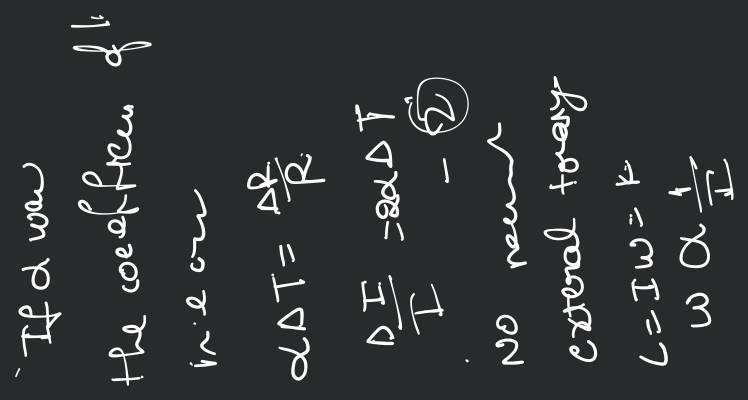 If α was
the coefficien of li
inear
αΔT = ΔR/R
ΔI/I = 2αΔT - ②
No
external torary
L = Iω = k
ω α 1/I